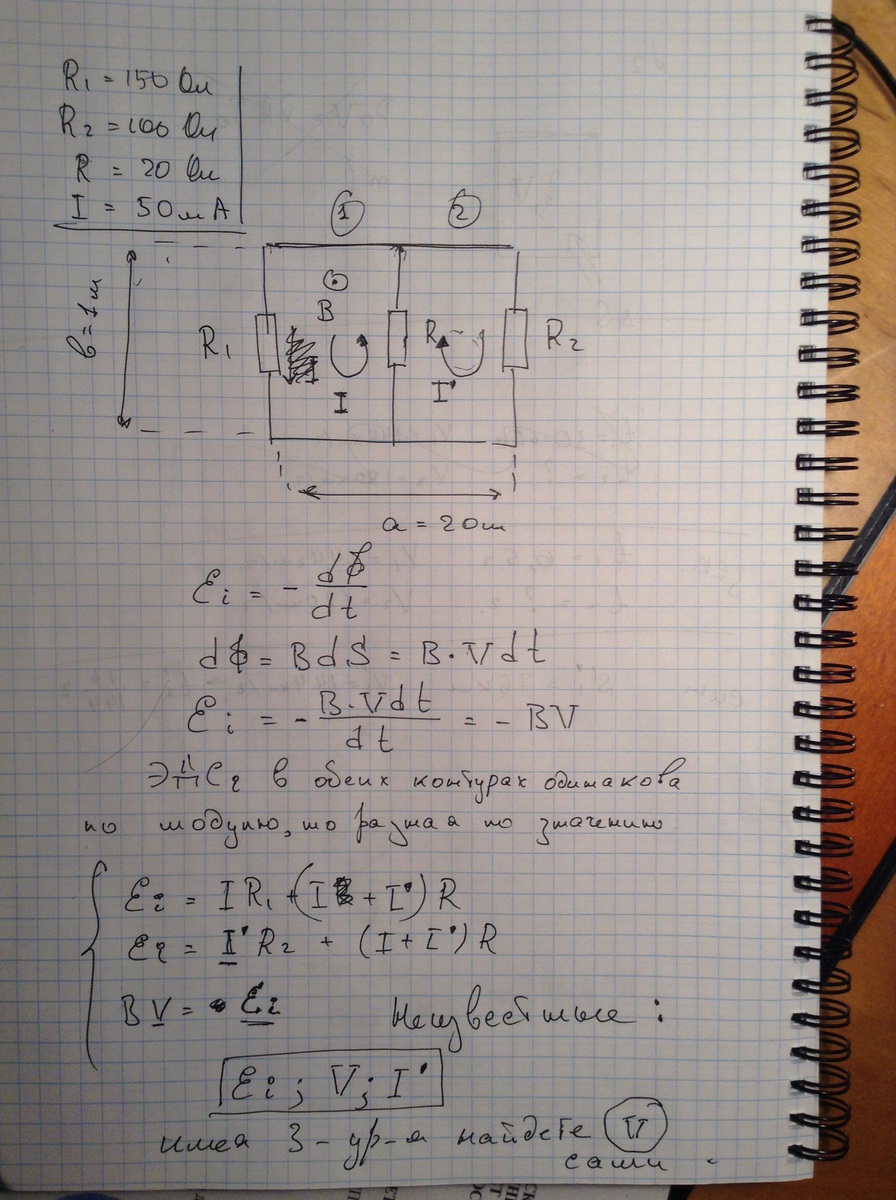 R₁ = 150 Ом
R₂ = 100 Ом
R = 20 Ом
I = 50 мА
① ②
B
R₁
R
R₂
I
I'
a = 20 м
Ɛi = - dФ/dt
dФ = B dS = B·V dt
Ɛi = - B·Vdt/dt = - BV
в обеих контурах одинакова
по модулю, но разная по значению
Ɛi = I R₁ + (I + I') R
Ɛi = I' R₂ + (I + I') R
B V = Ɛi
Неизвестные :
Ɛi ; V ; I'
имея 3 - ур-я найдете V
сами .